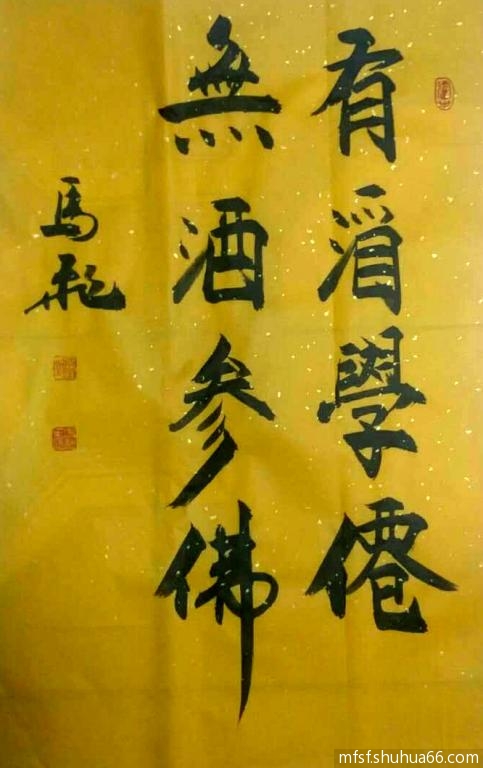 有酒學僊
無酒參佛
馬飛
mfsf.shuhua66.com